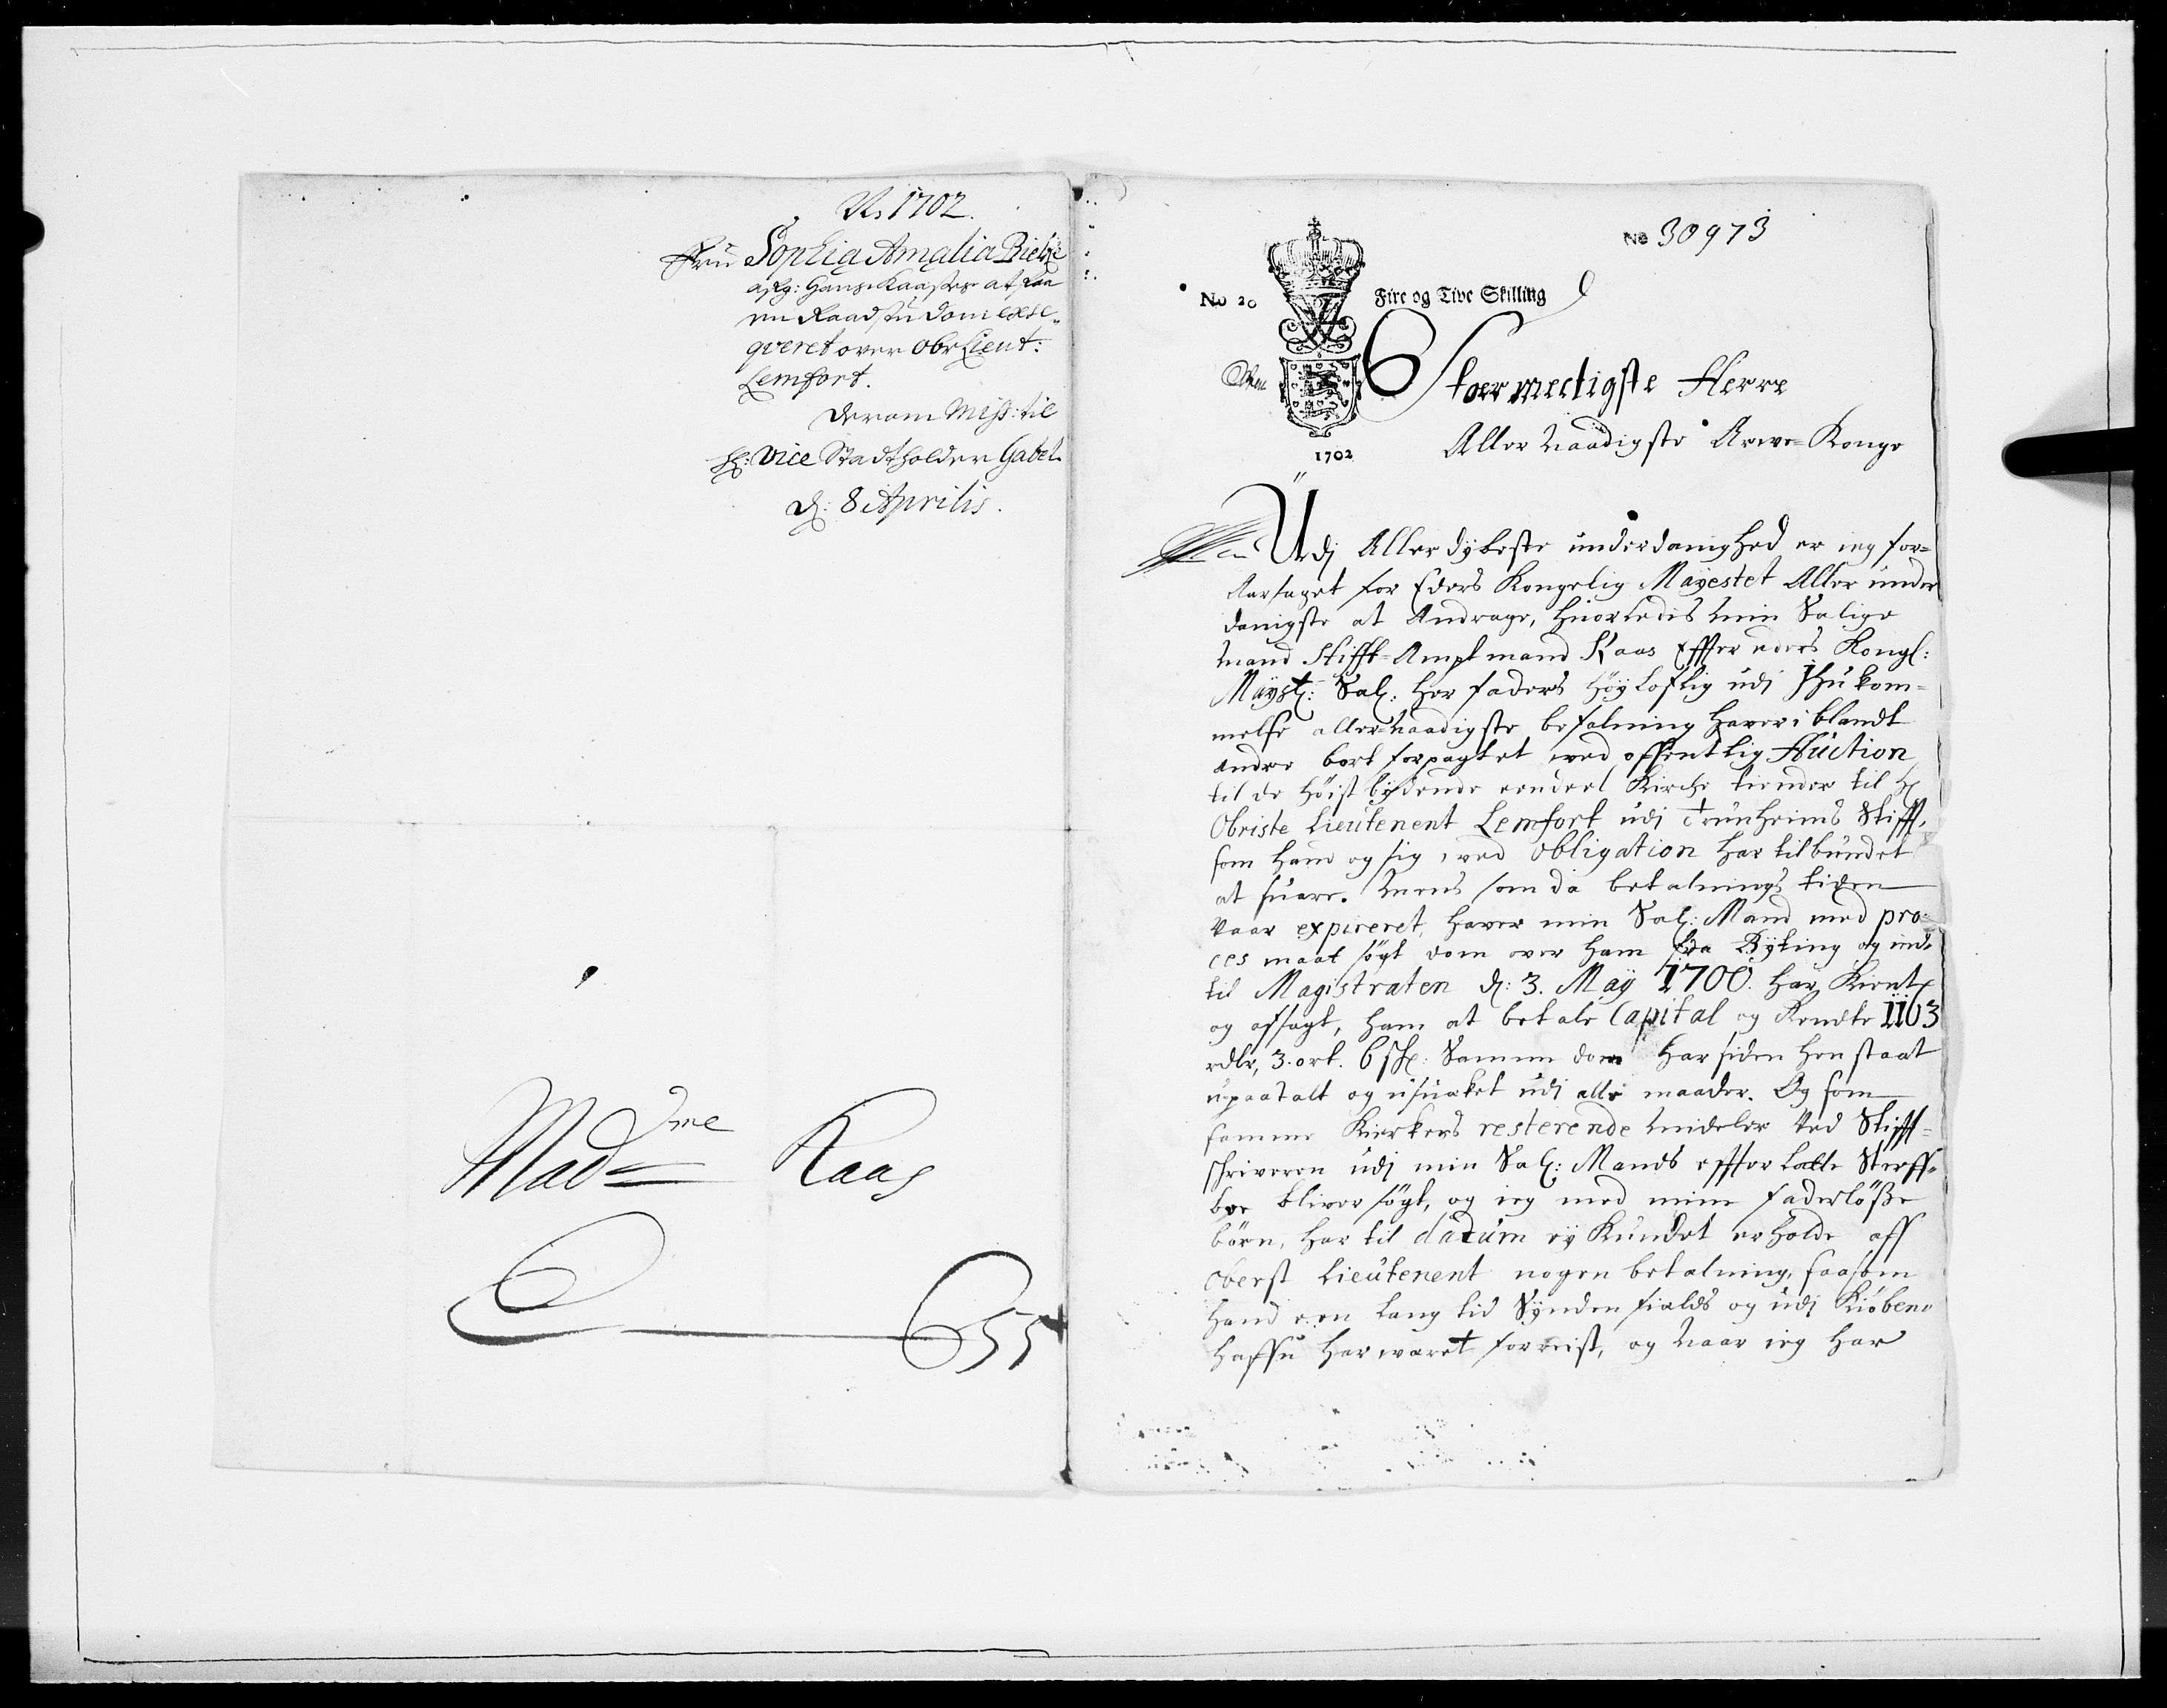 Ao 1702.
Fru Sophia Amalia Bielke
afg: Hans Kaasses at faa
en Raadstu dom exse-
qveret over Obr Lieut:
Lemfort.
derom Miss: til
H: Vice Stadtholder Gabel
d: 8 Aprilis.
Madme Kaas
655
No 30973
No 20 Fire og Tive Skilling
Stormectigste Herre
1702
Aller Naadigste Arwe-Konge
Udj Aller dybeste underdanighed er ieg for-
Aarsaget for Eders Kongelig Mayestet Aller under
danigste at Andrage, huorledis min Salige
Mand Stifft-Amptmand Kaas Effter eders Kongl:
Mayst: Sal: Her faders Høyloflig udj Ihukom-
melse aller-Naadigste befalning haver iblandt
andre bort forpagtet ved offentlig Auction
til de høist bydende eendeel Kirche tiender til H:
Obriste Lieutenent Lemfort udj Trunheims Stifft,
som hand og sig, ved obligation har tilbundet
at suare. Mens som da betalnings tiden
Vaar expireret, haver min Sal: Mand med pro-
ces maat søgt dom over ham fra Byting og ind-
til Magistraten d: 3. May 1700. har Kient
og afsagt, ham at betale Capital og Rendte 1103
rdlr, 3. ort. 6 sh: Samme dom har siden hen staat
upaatalt og usuaket udj alle maader. Og som
samme Kierkers resterende Mideler Ved Stifft-
schriveren udj min Sal: Mands effterlatte Sterff-
boe bliver søgt, og ieg med mine faderløsse
børn, har til datum ey Kundet erholde aff
Oberst Lieutenent nogen betalning, saasom
hand een lang tid Synden fields og udj Kiøben-
haffn har waret forreist, og Naar ieg har